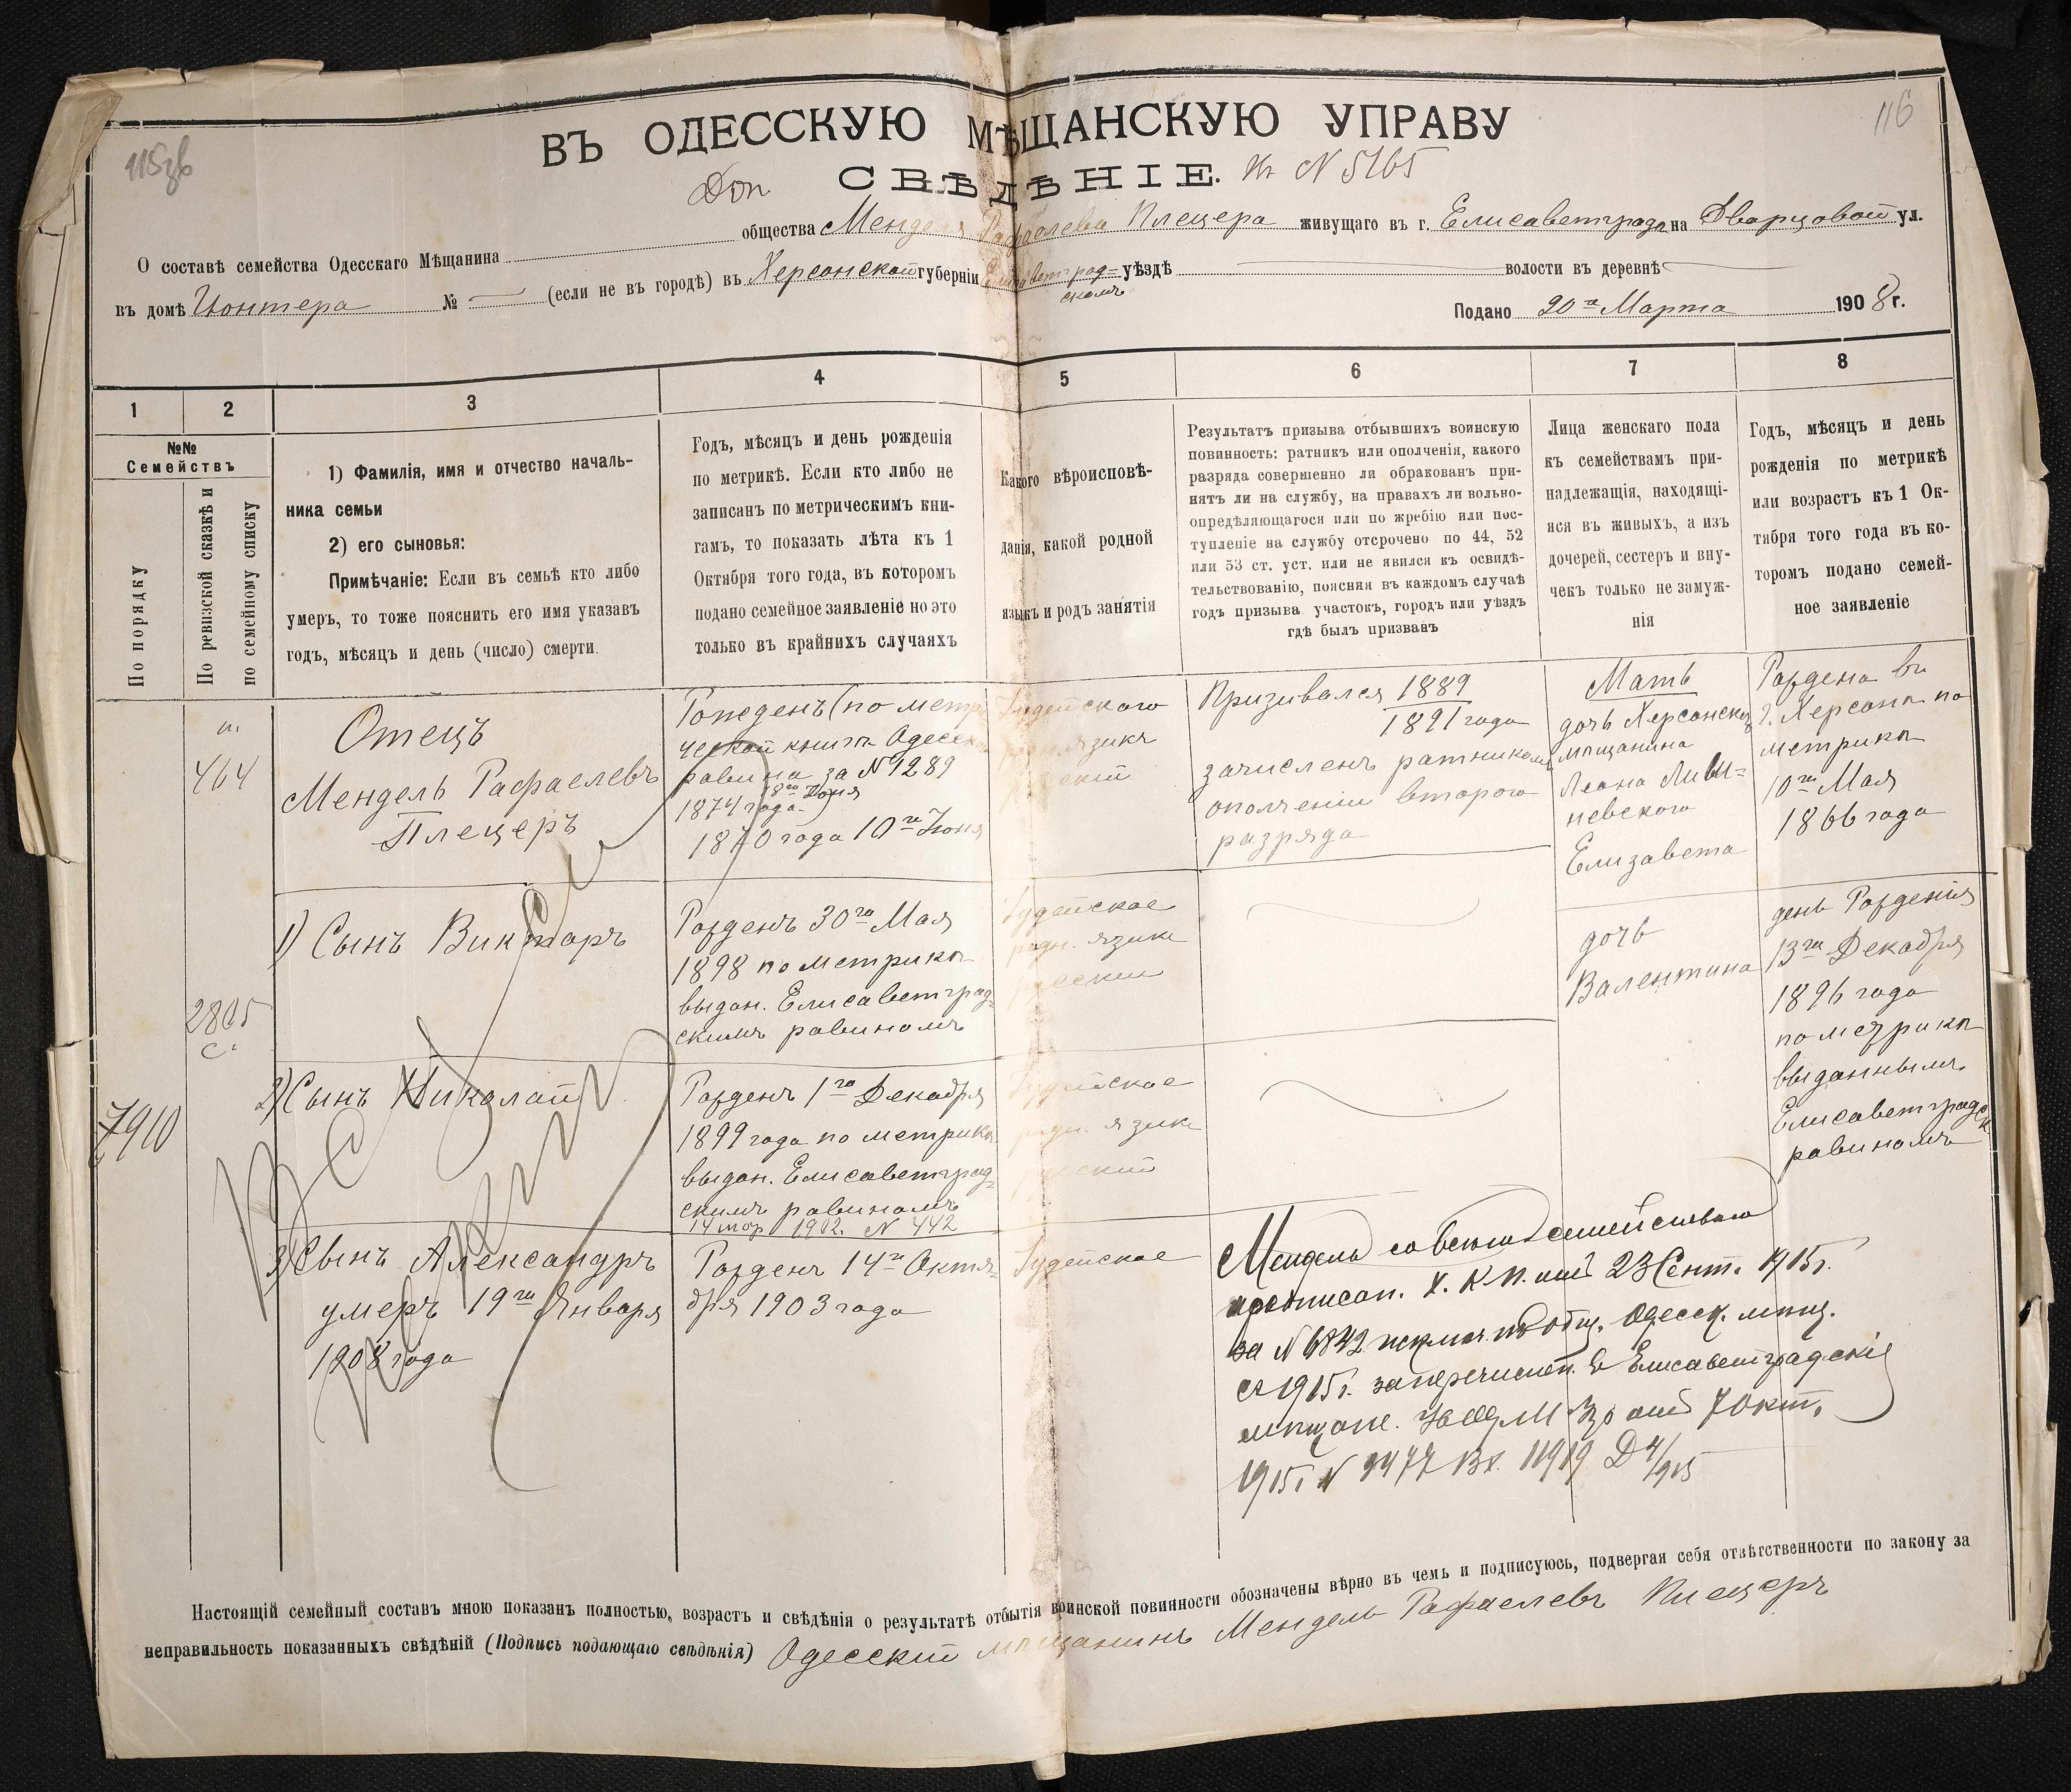 115зв
116
ВЪ ОДЕССКУЮ МѢЩАНСКУЮ УПРАВУ
Доп
СВѢДѢНІЕ.
N 5165
О составѣ семейства Одесскаго Мѣщанина общества Менделя Рафаелева Плецера живущаго въ г. Елисаветградѣ на Дворцовой ул.
въ домѣ № (если не въ городѣ) въ Херсонской губерніи Елисаветград= уѣздѣ волости въ деревнѣ
скомъ
Подано 20го Марта 1908 г.
1
2
3
4
5
6
7
8
№№
Семействъ
По порядку
По ревизской сказкѣ и
по семейному списку
1) Фамилія, имя и отчество началь-
ника семьи
2) его сыновья:
Примѣчаніе: Если въ семьѣ кто либо
умеръ, то тоже пояснить его имя указавъ
годъ, мѣсяцъ и день (число) смерти.
Годъ, мѣсяцъ и день рожденія
по метрикѣ. Если кто либо не
записанъ по метрическимъ кни-
гамъ, то показать лѣта къ 1
Октября того года, въ которомъ
подано семейное заявленіе но это
только въ крайнихъ случаяхъ
Какого вѣроисповѣ-
данія, какой родной
языкъ и родъ занятія
Результатъ призыва отбывшихъ воинскую
повинность: ратникъ или ополченія, какого
разряда совершенно ли обракованъ при-
нятъ ли на службу, на правахъ ли вольно-
опредѣляющагося или по жребію или пос-
тупленіе на службу отсрочено по 44, 52
или 53 ст. уст. или не явился къ освидѣ-
тельствованію, поясняя въ каждомъ случаѣ
годъ призыва участокъ, городъ или уѣздъ
гдѣ былъ призванъ
Лица женскаго пола
къ семействамъ при-
надлежащія, находящі-
яся въ живыхъ, а изъ
дочерей, сестеръ и вну-
чекъ только не замуж-
нія
Годъ, мѣсяцъ и день
рожденія по метрикѣ
или возрастъ къ 1 Ок-
тября того года въ ко-
торомъ подано семей-
ное заявленіе
464
2805
с.
7910
Отецъ
Мендель Рафаелевъ
Плецеръ
Рожденъ (по метри
ческой книгѣ Одесск
равина за N 1289
18го Іюня
1874 года)
1870 года 10го Іюня
Іудейского
родн. языкъ
русскій
Призывался 1889
1891 года
зачисленъ ратникомъ
ополченія второго
разряда
Мать
дочь Херсонског
мѣщанина
Елизавета
Рождена въ
г. Херсонѣ по
метрикѣ
10го Мая
1866 года
1) Сынъ Викторъ
Рожденъ 30го Мая
1898 по метрикѣ
выдан. Елисаветград=
скимъ равиномъ
Іудейское
родн. языкъ
русскій
дочь
Валентина
день Рожденія
13го Декабря
1896 года
по метрикѣ
выданнымъ
Елисаветградск
равиномъ
2) Сынъ Николай
Рожденъ 1го Декабря
1899 года по метрикѣ
выдан. Елисаветград=
скимъ равиномъ
14 мар 1902. N 442
Іудейское
родн. языкъ
русскій
3) Сынъ Александръ
умеръ 19го Января
1908 года
Рожденъ 14го Октя=
бря 1903 года
Іудейское
Мендель со всемъ семействомъ
предписан. Х. К. П. отъ 23 Сент. 1915 г.
за N 6842 исключ. изъ общ. Одесск. мѣщ.
съ 1915 г. за перечислен. въ Елисаветградскіе
мѣщане. отъ 7 Окт.
1915 г N 9477 Вх. 11919
Настоящій семейный составъ мною показанъ полностью, возрастъ и свѣдѣнія о результатѣ отбытія воинской повинности обозначены вѣрно въ чемъ и подписуюсь, подвергая себя отвѣтственности по закону за
неправильность показанныхъ свѣдѣній (Подпись подающаго свѣдѣнія) Одесскій мѣщанинъ Мендель Рафаелевъ Плецеръ